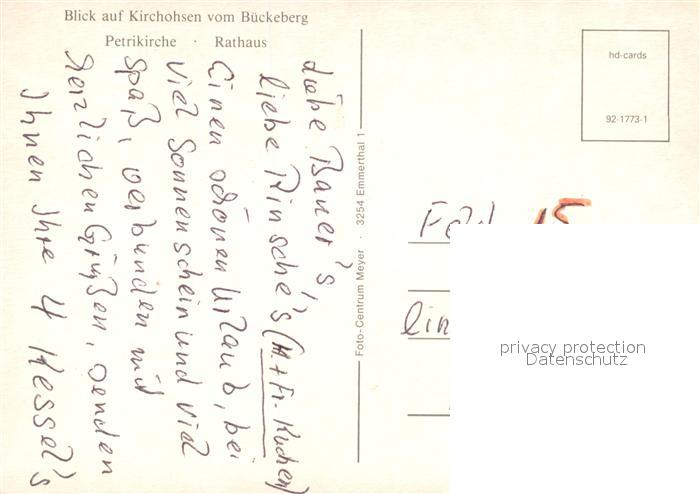 Blick auf Kirchohsen vom Bückeberg
Petrikirche · Rathaus
Liebe Bauer's,
liebe Rinsche's (M+Fr. Kuchen)
Einen schönen Urlaub, bei
viel Sonnenschein und viel
Spaß, verbunden mit
herzlichen Grüßen, senden
Ihnen Ihre 4 Kessel's
Foto-Centrum Meyer · 3254 Emmerthal 1
hd-cards
92-1773-1
15
privacy protection
Datenschutz